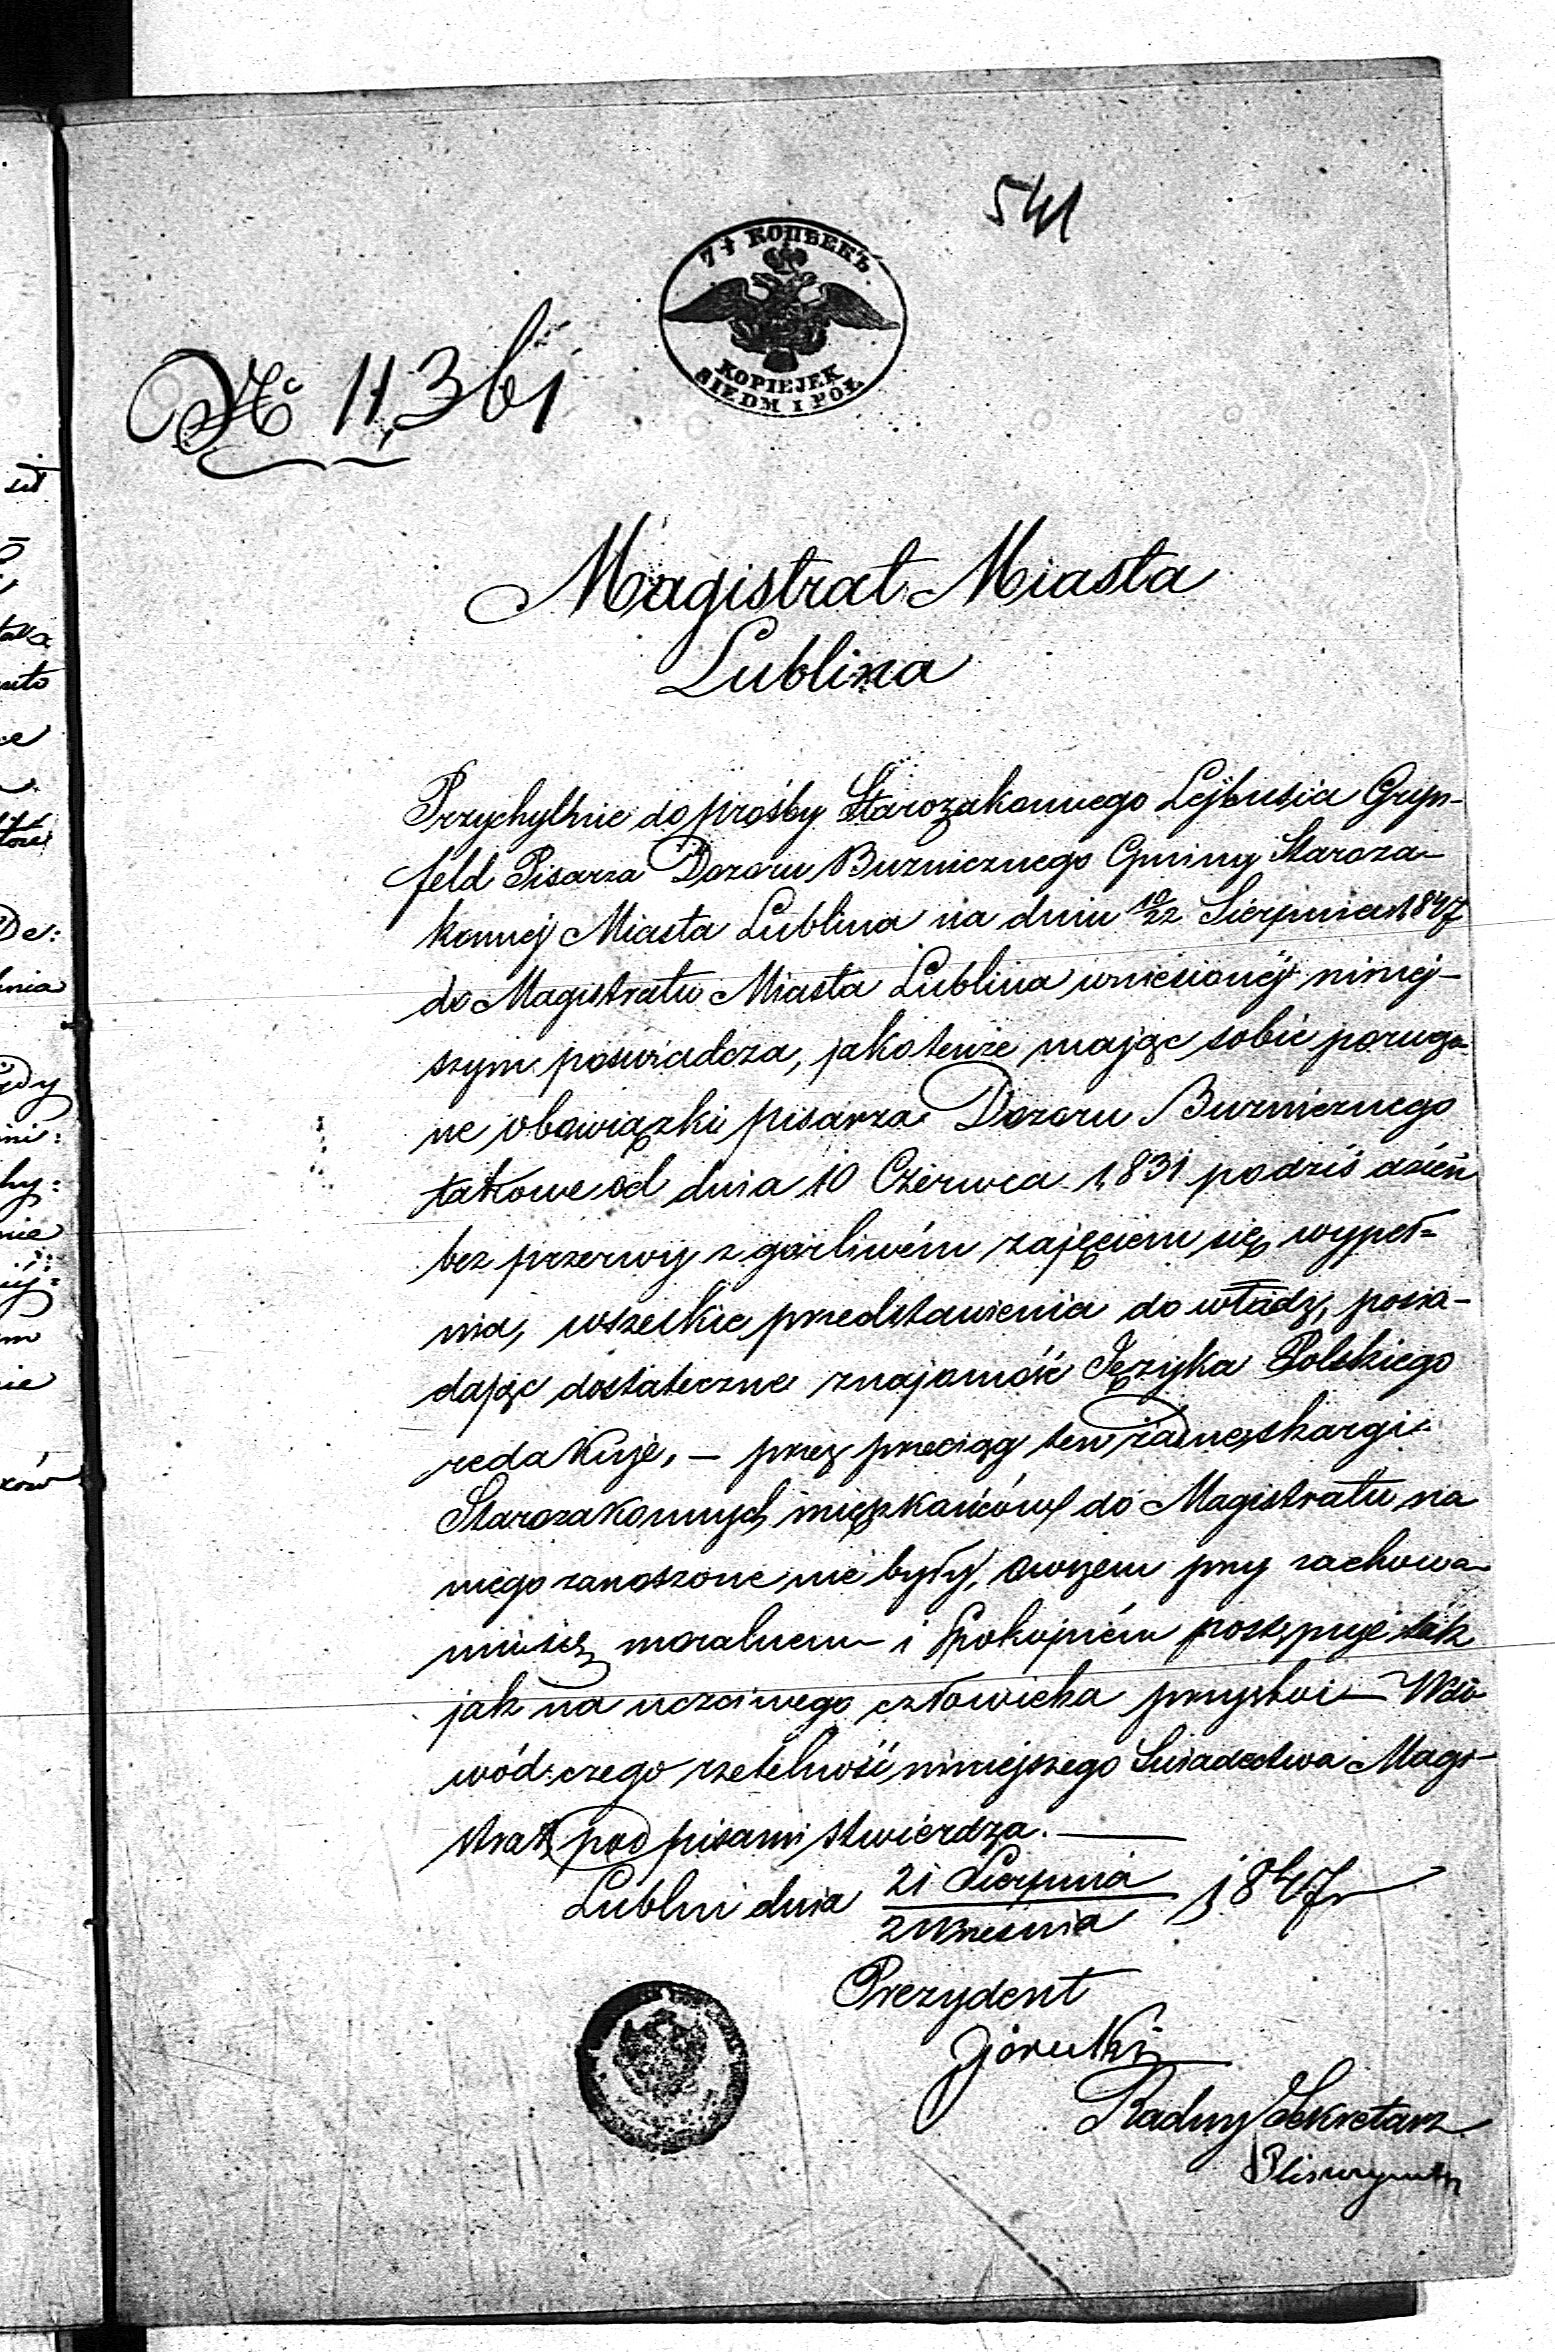 541
7½ КОПѢЕКЪ
KOPIEJEK
SIEDM I PÓŁ
Nº 11,361
Magistrat Miasta
Lublina
Przychylnie do prośby Starozakonnego Lejbusia Gryn-
feld Pisarza Dozoru Buznicznego Gminy Staroza-
konnej Miasta Lublina na dniu 10/22 Sierpnia 1847
do Magistratu Miasta Lublina wniesionéj niniej-
szym poswiadcza, jako tenże mając sobie poruczo-
ne obowiązki pisarza Dozoru Buznicznego
takowe od dnia 10 Czerwca 1831 po dziś dzień
bez przerwy z gorliwém zajęciem się wypeł=
nia, wszelkie przedstawienia do władz, posia-
dając dostateczne znajomość Języka Polskiego
redakuje, – przez przeciąg ten żadne skargi
Starozakonnych mięszkańców do Magistratu na
niego zanoszone nie były, owszem przy zachowa-
niu się moralnem i spokojném postępuje tak
jak na uczciwego człowieka przystoi – W do
wód czego rzetelność niniejszego Swiadectwa Magi-
strat pod pisami stwierdza. —
Lublin dnia 21 Sierpnia / 2 Września 1847 r
Prezydent
Radny Sekretarz